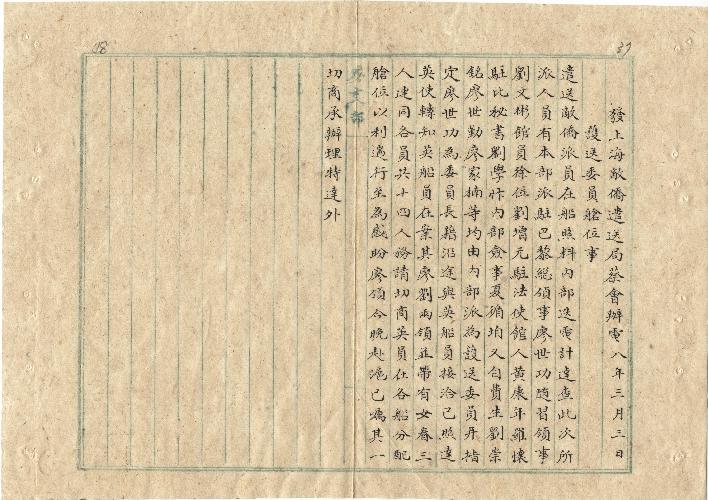 發上海敵僑遣送局蔡會辦電八年三月三日
護送委員艙位事
遣送敵僑派員在船照料內部迭電計達查此次所
派人員有本部派駐巴黎總領事廖世功隨習領事
劉文彬館員徐位劉增元駐法使館人黃康年羅懷
駐比秘書劉學 內部僉事夏 又自費生劉崇
銘廖世勤廖家楠等均由內部派為護送委員并指
定廖世功為委員長藉沿途與英船員接洽已照達
英使轉知英船員在案其廖劉兩領並帶有女眷三
人連同各員共十四人務請切商英員在各船分配
艙位以利遄行至為感盼廖領今晚赴滬已囑其一
切商承辦理特達外
外交部
37
38